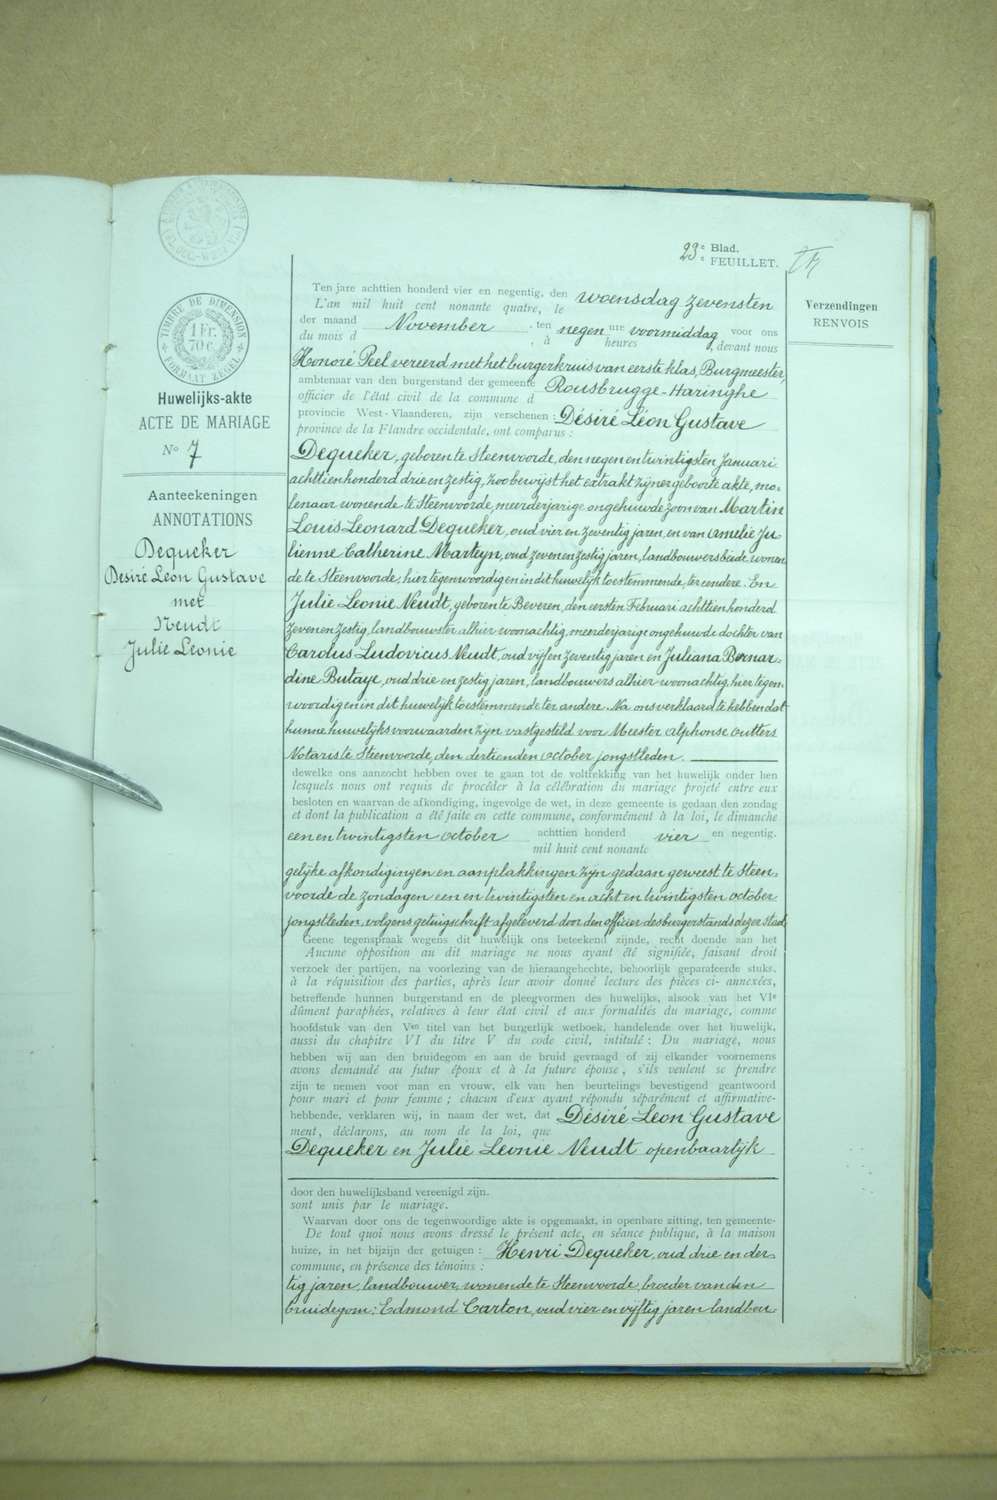 23e Blad.
e FEUILLET.
TIMBRE DE DIMENSION
1 Fr.
70 c.
FORMAAT ZEGEL
Huwelijks-akte
ACTE DE MARIAGE
No 7
Aanteekeningen
ANNOTATIONS
Dequeker
Desiré Léon Gustave
met
Neudt
Julie Leonie
Verzendingen
RENVOIS
Ten jare achttien honderd vier en negentig, den woensdag zevensten
L'an mil huit cent nonante quatre, le
der maand November ten negen ure voormiddag voor ons
du mois d , à heures , devant nous
Honoré Peel vereerd met het burgerkruis van eerste klas, Burgmeester,
ambtenaar van den burgerstand der gemeente Rousbrugge-Haringhe
officier de l'état civil de la commune d
provincie West-Vlaanderen, zijn verschenen : Désiré Léon Gustave
province de la Flandre occidentale, ont comparus :
Dequeker, geboren te Steenvoorde, den negen en twintigsten Januari
achttienhonderd drie en zestig, zoo bewijst het extrakt zijner geboorte akte, mo-
lenaar wonende te Steenvoorde, meerderjarige ongehuwde zoon van Martin
Louis Leonard Dequeker, oud vier en zeventig jaren, en van Amelie Ju
lienne Catherine Marteyn, oud zeven en zestig jaren, landbouwers beide wonen
de te Steenvoorde, hier tegenwoordig en in dit huwelijk toestemmende, ter eendere. En
Julie Leonie Neudt, geboren te Beveren, den eersten Februari achttienhonderd
zeven en zestig, landbouwster alhier woonachtig, meerderjarige ongehuwde dochter van
Carolus Ludovicus Neudt, oud vijf en zeventig jaren en Juliana Bernar-
dine Butaye, oud drie en zestig jaren, landbouwers alhier woonachtig, hier tegen-
woordig en in dit huwelijk toestemmende ter andere. Na ons verklaard te hebben dat
hunne huwelijksvoorwaarden zijn vastgesteld voor Meester Alphonse Outters
Notaris te Steenvoorde, den dertienden October jongstleden.
dewelke ons aanzocht hebben over te gaan tot de voltrekking van het huwelijk onder hen
lesquels nous ont requis de procéder à la célébration du mariage projeté entre eux
besloten en waarvan de afkondiging, ingevolge de wet, in deze gemeente is gedaan den zondag
et dont la publication a été faite en cette commune, conformément à la loi, le dimanche
een en twintigsten october achttien honderd vier en negentig.
mil huit cent nonante
gelijke afkondigingen en aanplakkingen zijn gedaan geweest te Steen-
voorde de zondagen een en twintigsten en acht en twintigsten october
jongstleden, volgens getuigschrift afgeleverd door den officier des burgerstands dezer Stad.
Geene tegenspraak wegens dit huwelijk ons beteekend zijnde, recht doende aan het
Aucune opposition au dit mariage ne nous ayant été signifiée, faisant droit
verzoek der partijen, na voorlezing van de hieraangehechte, behoorlijk geparafeerde stuks,
à la réquisition des parties, après leur avoir donné lecture des pièces ci- annexées,
betreffende hunnen burgerstand en de pleegvormen des huwelijks, alsook van het VIe
dûment paraphées, relatives à leur état civil et aux formalités du mariage, comme
hoofdstuk van den Ven titel van het burgerlijk wetboek, handelende over het huwelijk,
aussi du chapitre VI du titre V du code civil, intitulé : Du mariage, nous
hebben wij aan den bruidegom en aan de bruid gevraagd of zij elkander voornemens
avons demandé au futur époux et à la future épouse, s'ils veulent se prendre
zijn te nemen voor man en vrouw, elk van hen beurtelings bevestigend geantwoord
pour mari et pour femme ; chacun d'eux ayant répondu séparément et affirmative-
hebbende, verklaren wij, in naam der wet, dat Désiré Léon Gustave
ment, déclarons, au nom de la loi, que
Dequeker en Julie Leonie Neudt openbaarlijk
door den huwelijksband vereenigd zijn.
sont unis par le mariage.
Waarvan door ons de tegenwoordige akte is opgemaakt, in openbare zitting, ten gemeente-
De tout quoi nous avons dressé le présent acte, en séance publique, à la maison
huize, in het bijzijn der getuigen : Henri Dequeker, oud drie en der-
commune, en présence des témoins :
tig jaren, landbouwer, wonende te Steenvoorde, broeder van den
bruidegom; Edmond Carton, oud vier en vijftig jaren landbou